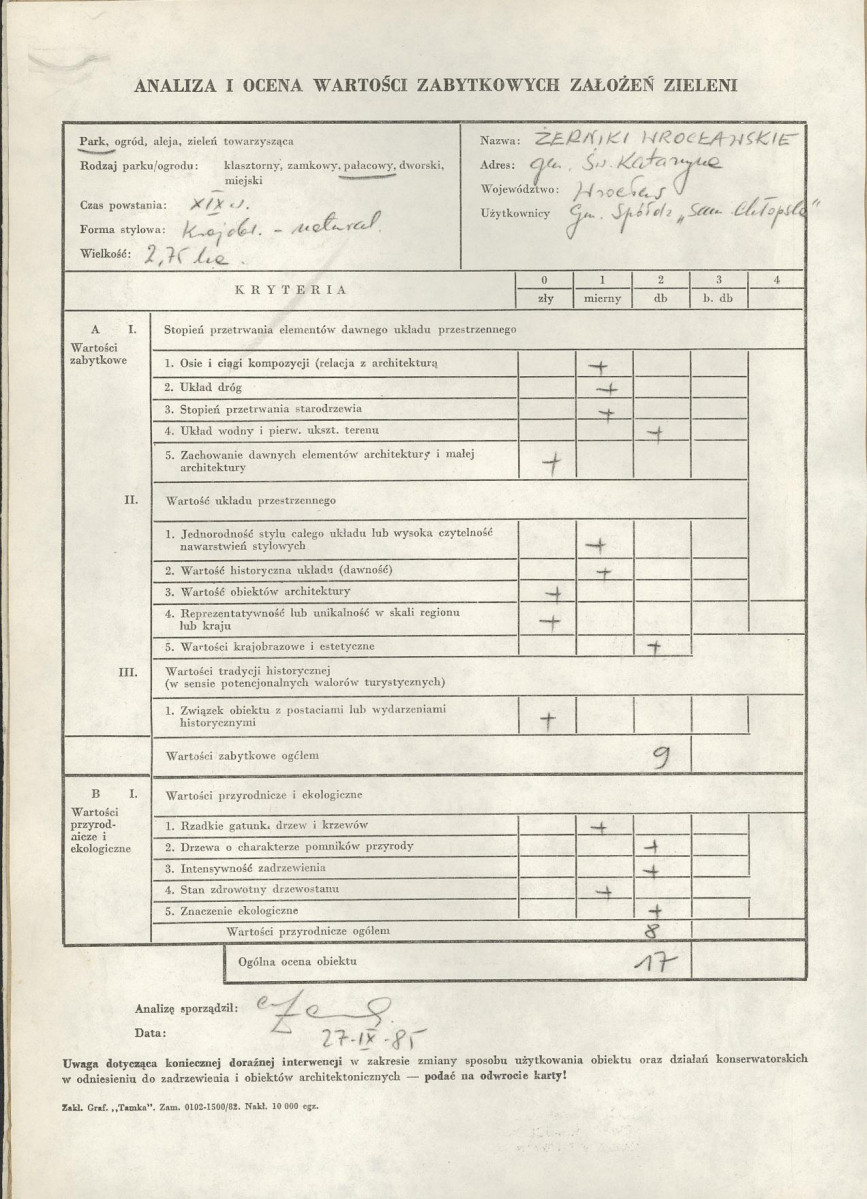 ANALIZA I OCENA WARTOŚCI ZABYTKOWYCH ZAŁOŻEŃ ZIELENI
Park, ogród, aleja, zieleń towarzysząca
Rodzaj parku/ogrodu: klasztorny, zamkowy, pałacowy, dworski,
miejski
Czas powstania: XIX w.
Forma stylowa: Krajobr. - natural.
Wielkość: 2,75 ha.
Nazwa: ŻERNIKI WROCŁAWSKIE
Adres: gm. Św. Katarzyna
Województwo: Wrocław
Użytkownicy Gm. Spółdz „Sam. Chłopska"
KRYTERIA
0 1 2 3 4
zły mierny db b. db
A I. Stopień przetrwania elementów dawnego układu przestrzennego
Wartości
zabytkowe
1. Osie i ciągi kompozycji (relacja z architekturą +
2. Układ dróg +
3. Stopień przetrwania starodrzewia +
4. Układ wodny i pierw. ukszt. terenu +
5. Zachowanie dawnych elementów architektury i małej
architektury +
II. Wartość układu przestrzennego
1. Jednorodność stylu całego układu lub wysoka czytelność
nawarstwień stylowych +
2. Wartość historyczna układu (dawność) +
3. Wartość obiektów architektury +
4. Reprezentatywność lub unikalność w skali regionu
lub kraju +
5. Wartości krajobrazowe i estetyczne +
III. Wartości tradycji historycznej
(w sensie potencjonalnych walorów turystycznych)
1. Związek obiektu z postaciami lub wydarzeniami
historycznymi +
Wartości zabytkowe ogółem 9
B I. Wartości przyrodnicze i ekologiczne
Wartości
przyrod-
nicze i
ekologiczne
1. Rzadkie gatunki drzew i krzewów +
2. Drzewa o charakterze pomników przyrody +
3. Intensywność zadrzewienia +
4. Stan zdrowotny drzewostanu +
5. Znaczenie ekologiczne +
Wartości przyrodnicze ogółem 8
Ogólna ocena obiektu 17
Analizę sporządził:
Data: 27-IX-85
Uwaga dotycząca koniecznej doraźnej interwencji w zakresie zmiany sposobu użytkowania obiektu oraz działań konserwatorskich
w odniesieniu do zadrzewienia i obiektów architektonicznych — podać na odwrocie karty!
Zakł. Graf. „Tamka". Zam. 0102-1500/82. Nakł. 10 000 egz.